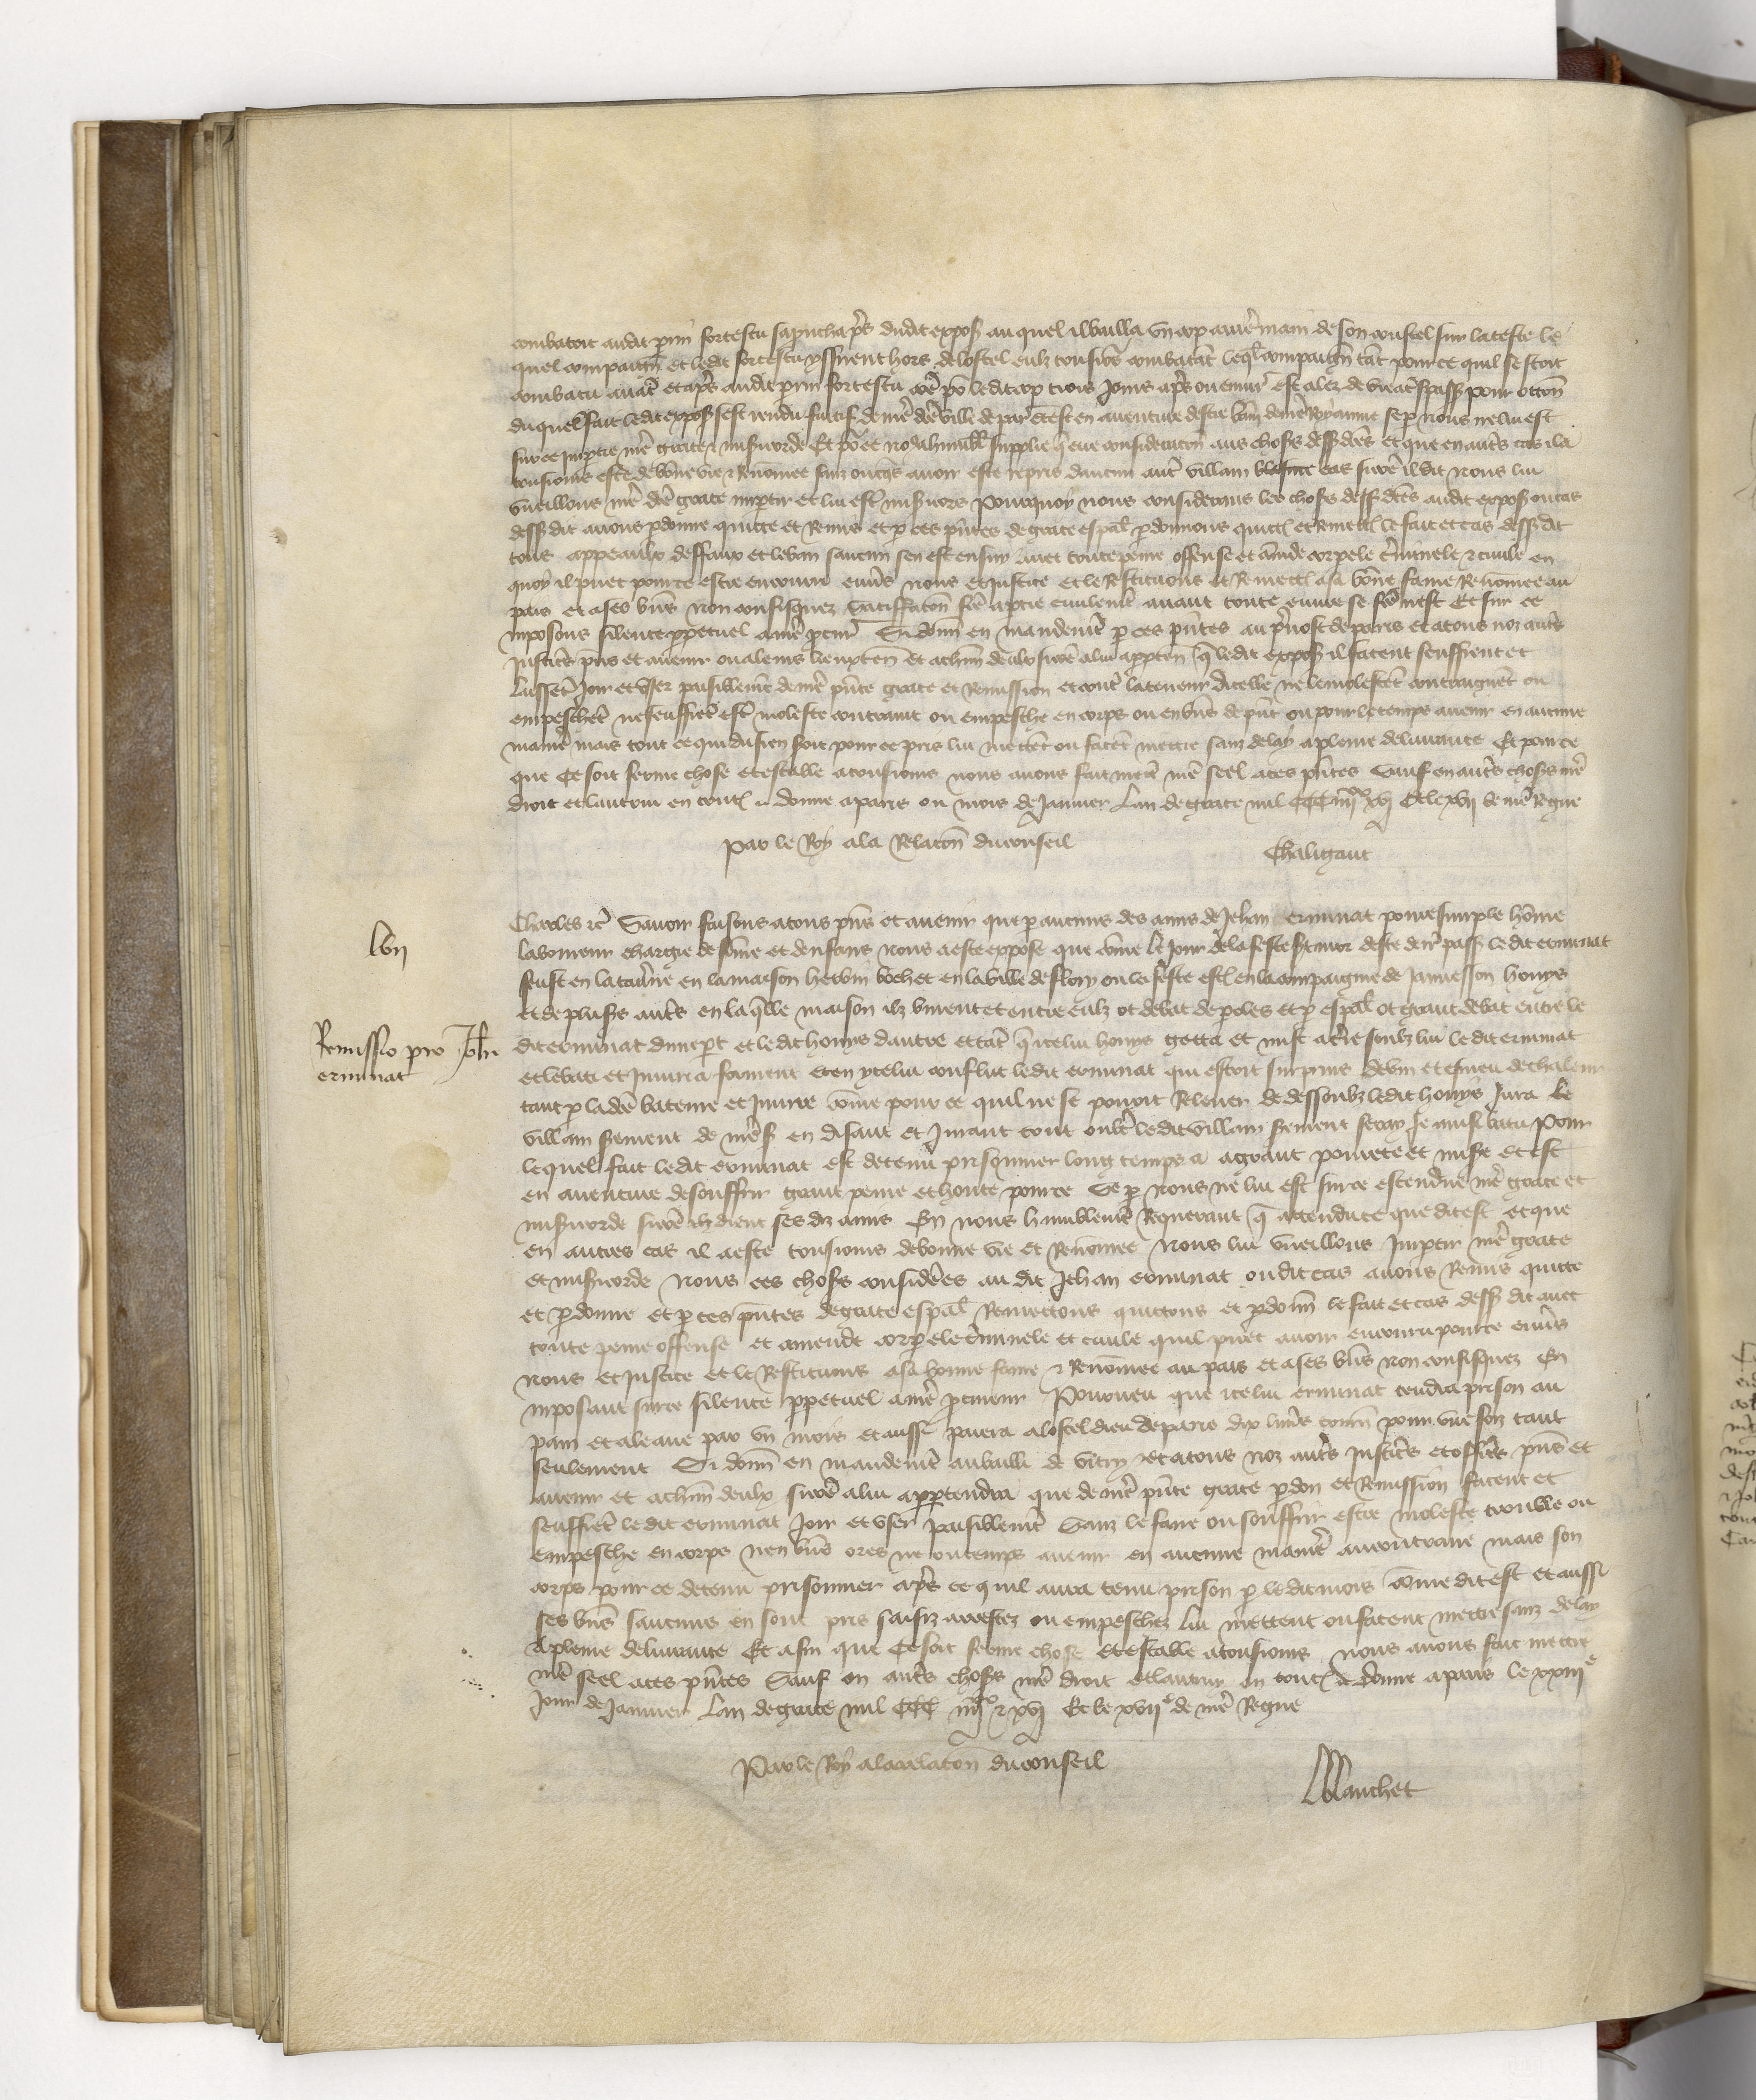 combatoit audit perrin fortescu saproucha pres dudit expos auquel il bailla un cop arrieremain de son coustel sur la teste le
quel compaignon et ledit fortescu yssirent hors de lostel eulz tousiours combatant lequel compaignon tant pour ce quil sestoit
combatu avant et apres audit perrin fortescu comme pour ledit cop trois jours apres ou environ est alez de vie a trespass pour occasion
duquel fait ledit expos sest rendu fuitif de nostre dicte ville de paris et est en aventure destre banni de nostre Royaume se par nous ne lui est
sur ce impartie nostre grace et misericorde Et pour ce nous a humblement supplie que eue consideracion aus choses dessus dictes et que en autres cas il a
tousiours este de bonne vie et Renommee sanz oncques avoir este repris daucun autre villain blasme cas sicomme il dit nous lui
vueillons nostre dicte grace impartir et lui estre misericors Pourquoy nous considerans les choses dessus dictes audit expos ou cas
dessus dit avons pardonne quitte et Remis et par ces presentes de grace especial pardonnons quittons et Remettons le fait et cas dessus dit
tous appeaulx deffaux et le ban saucun sen est ensuy avec toute peine offense et amende corporele criminele et civile en
quoy il puet pour ce estre encouru envers nous et Justice et le Restituons et Remettons a sa bonne fame Renommee au
pais et a ses biens non confisquez Satiffacion faicte a partie civilement avant toute euvre se faicte nest Et sur ce
imposons silence perpetuel a nostre procureur Si donnons en mandement par ces presentes au prevost de paris et a tous noz autres
Justiciers presens et avenir ou a leurs lieuxtenans et a chascun deulx sicomme a lui appartendra que ledit expos il facent seuffrent et
laissent Joir et User paisiblement de nostre presente grace et Remission et contre la teneur dicelle ne le molestent contraignent ou
empeschent ne seuffrent estre moleste contraint ou empesche en corps ou en biens de present ou pour le temps avenir en aucune
maniere mais tout ce qui du sien soit pour ce pris lui mettent ou facent mettre sanz delay a pleine delivrance Et pour ce
que Ce soit ferme chose et estable a tousiours nous avons fait mettre nostre seel a ces presentes Sauf en autres choses nostre
droit et lautrui en toutes donne a paris ou mois de Janvier Lan de grace mil CCC iiii xx xvj Et le xvij de nostre Regne
Par le Roy a la Relacion du conseil
Chaligaut
lvij
Remissio pro Johanne
erminat
Charles etc Savoir faisons a tous presens et avenir que par aucuns des amis de Jehan erminat povre simple homme
laboureur chargie de femme et denfans nous a este expose que comme le jour de la feste deste derrenier passe ledit erminat
feust en la taverne en la maison hervin bochet en la ville de flory ou la feste estoit en la compaignie de Jamesson honys
et de plusieurs autres en laquelle maison ilz burent et entre eulz ot debat de paroles et par especial ot grant debat entre le
dit erminat dune part et ledit honys dautre et tant que icelui honys getta et mist a terre soubz lui ledit erminat
et le bati et Iniuria forment et en ycelui conflict ledit erminat qui estoit surprins de vin et esmeu de chaleur
tant pour ladicte bateure et Iniure comme pour ce quil ne se povoit Relever de dessoubz ledit honys Jura le
villain serment de nostre seigneur en disant et Jurant tout oultre ledit villain serment seray je ainsi batu Pour
lequel fait ledit erminat est detenu prisonnier long temps a a grant povrete et misere et est
en aventure de souffrir grant peine et honte pour ce Se par nous ne lui est sur ce estendue nostre grace et
misericorde sicomme ilz dient sesdiz amis En nous humblement Requerant que attendu ce que dit est et que
en autres cas il a este tousiours de bonne vie et Renommee Nous lui vueillons Impartir nostre grace
et misericorde Nous ces choses considerees audit Jehan erminat oudit cas avons Remis quitte
et pardonne et par ces presentes de grace especial Remettons quittons et pardonnons le fait et cas dessus dit avec
toute peine offense et amende corporele criminele et civile quil puet avoir encouru pour ce envers
nous et Justice et le Restituons a sa bonne fame et Renommee au pais et a ses biens non confisquez En
imposant sur ce silence perpetuel a nostre procureur Pourveu que icelui erminat tendra prison au
pain et a leaue par un mois et aussi paiera a lostel dieu de paris dix livres tournois pour une foiz tant
seulement Si donnons en mandement au bailli de vitry et a tous noz autres Justiciers et officiers presens et
avenir et a chascun deulx sicomme a lui appartendra que de nostre presente grace pardon et Remission facent et
seuffrent ledit erminat Joir et user paisiblement Sanz le faire ou souffrir estre moleste trouble ou
empesche en corps nen biens ores ne ou temps avenir en aucune maniere au contraire mais son
corps pour ce detenu prisonnier apres ce quil aura tenu prison par ledit mois comme dit est et aussi
ses biens saucuns en sont pris saisiz arrestez ou empeschez lui mettent ou facent mettre sanz delay
a pleine delivrance Et afin que Ce soit ferme chose et estable a tousiours nous avons fait mettre
nostre seel a ces presentes Sauf en autres choses nostre droit et lautruy en toutes donne a paris le xxiiije
Jour de Janvier Lan de grace mil CCC iiii xx et xvj Et le xvije de nostre Regne
Par le Roy a la relacion du conseil
Blanchet